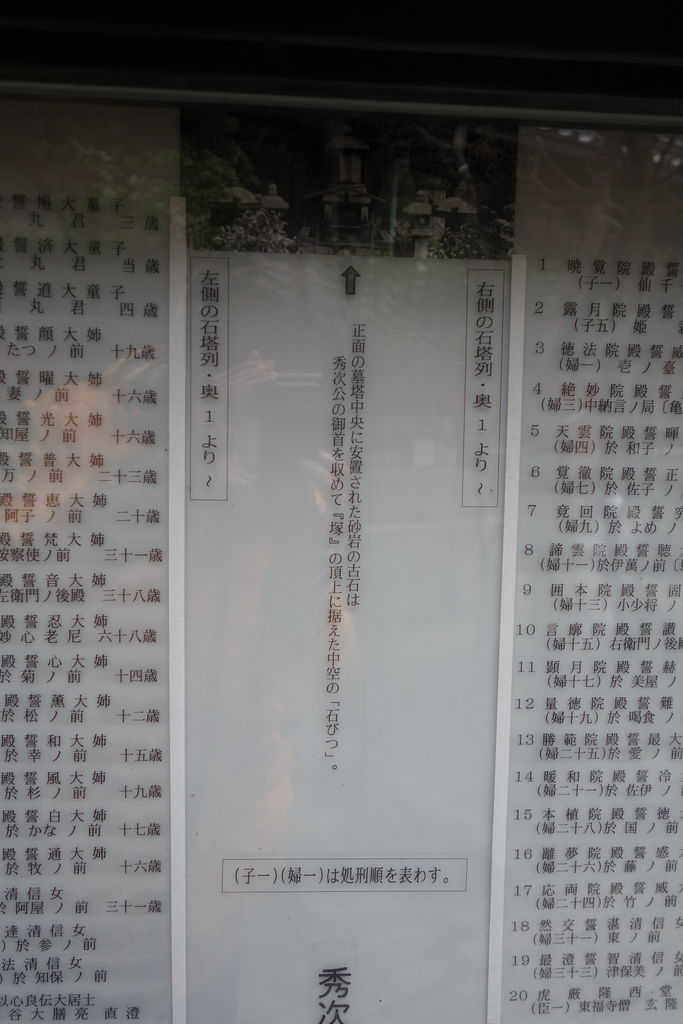 誓旭大童子
丸君 三歳
誓済大童子
丸君 当歳
誓道大童子
丸君 四歳
誓顔大姉
たつノ前 十九歳
誓曜大姉
妻ノ前 十六歳
誓光大姉
知屋ノ前 十六歳
殿誓普大姉
万ノ前 二十三歳
殿誓恵大姉
阿子ノ前 二十歳
殿誓梵大姉
按察使ノ前 三十一歳
殿誓音大姉
左衛門ノ後殿 三十八歳
殿誓忍大姉
妙心老尼 六十八歳
殿誓心大姉
於菊ノ前 十四歳
殿誓薫大姉
於松ノ前 十二歳
殿誓和大姉
於幸ノ前 十五歳
殿誓風大姉
於杉ノ前 十九歳
殿誓白大姉
於かなノ前 十七歳
殿誓通大姉
於牧ノ前 十六歳
清信女
於阿屋ノ前 三十一歳
達清信女
)於参ノ前
法清信女
)於知保ノ前
以心良伝大居士
谷大膳亮 直澄
右側の石塔列・奥1より～
正面の墓塔中央に安置された砂岩の古石は
秀次公の御首を収めて『塚』の頂上に据えた中空の「石びつ」。
左側の石塔列・奥1より～
(子一)(婦一)は処刑順を表わす。
秀次
1 暁覚院殿誓
(子一) 仙千
2 露月院殿誓
(子五) 姫
3 徳法院殿誓威
(婦一) 壱ノ臺
4 絶妙院殿誓
(婦三)中納言ノ局〔亀
5 天雲院殿誓暉
(婦四) 於和子ノ
6 覚徹院殿誓正
(婦七) 於佐子ノ
7 竟回院殿誓
(婦九) 於よめノ
8 諦雲院殿誓聴
(婦十一)於伊萬ノ前〔
9 囲本院殿誓固
(婦十三) 小少将ノ
10 言廓院殿誓讃
(婦十五) 右衛門ノ後殿
11 顕月院殿誓赫
(婦十七) 於美屋ノ
12 量徳院殿誓難
(婦十九) 於喝食ノ
13 勝範院殿誓最大
(婦二十五)於愛ノ前
14 暖和院殿誓冷
(婦二十一)於佐伊ノ
15 本植院殿誓徳
(婦二十八)於国ノ前
16 離夢院殿誓感
(婦二十六)於藤ノ前
17 応両院殿誓威
(婦二十四)於竹ノ前
18 然交誓湛清信女
(婦三十一) 東ノ前
19 最澄誓智清信女
(婦三十三) 津保美ノ前
20 虎厳隆西堂
(臣一) 東福寺僧 玄隆